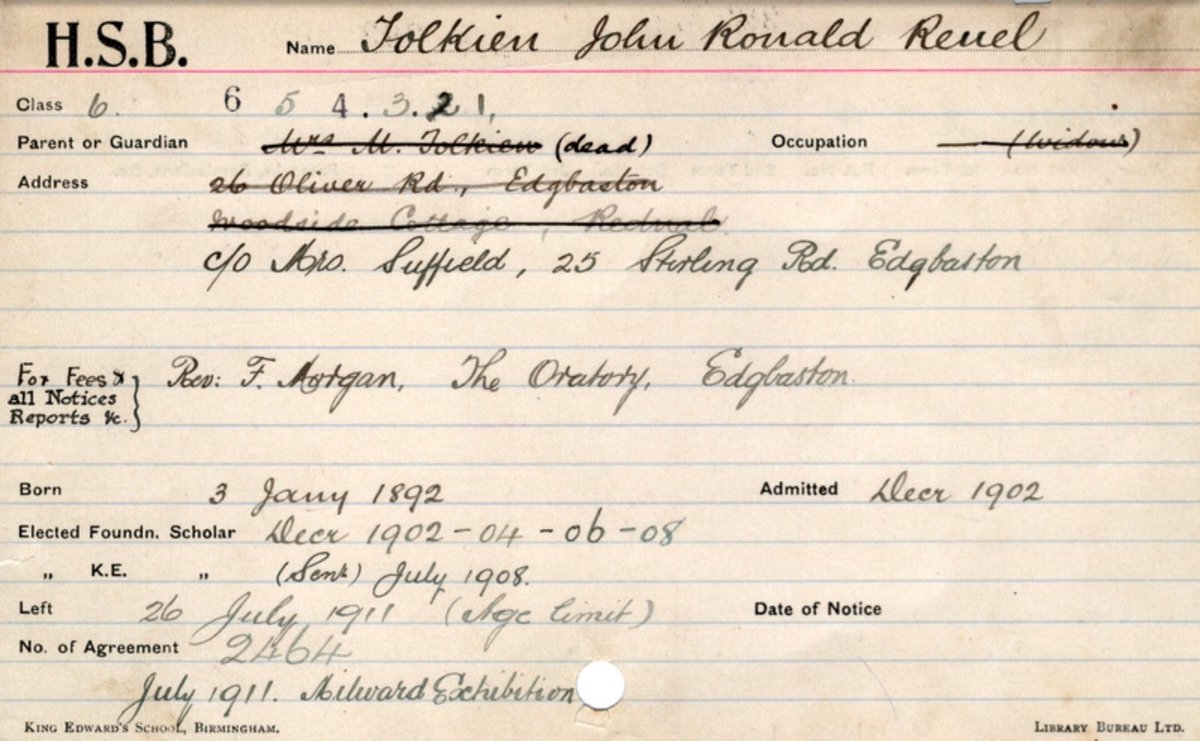 H.S.B. Name Tolkien John Ronald Reuel
Class 6. 6 5 4. 3. 2 1,
Parent or Guardian Mrs M. Tolkien (dead) Occupation (Widow)
Address 26 Oliver Rd., Edgbaston
Woodside Cottage, Rednal.
c/o Mrs. Suffield, 25 Stirling Rd. Edgbaston
For Fees & all Notices Reports &c. } Rev: F. Morgan, The Oratory, Edgbaston.
Born 3 Jany 1892 Admitted Decr 1902
Elected Foundn. Scholar Decr 1902 - 04 - 06 - 08
„ K.E. „ (Senr) July 1908.
Left 26 July 1911 (Age limit) Date of Notice
No. of Agreement 2464
July 1911. Milward Exhibition
King Edward's School, Birmingham. Library Bureau Ltd.